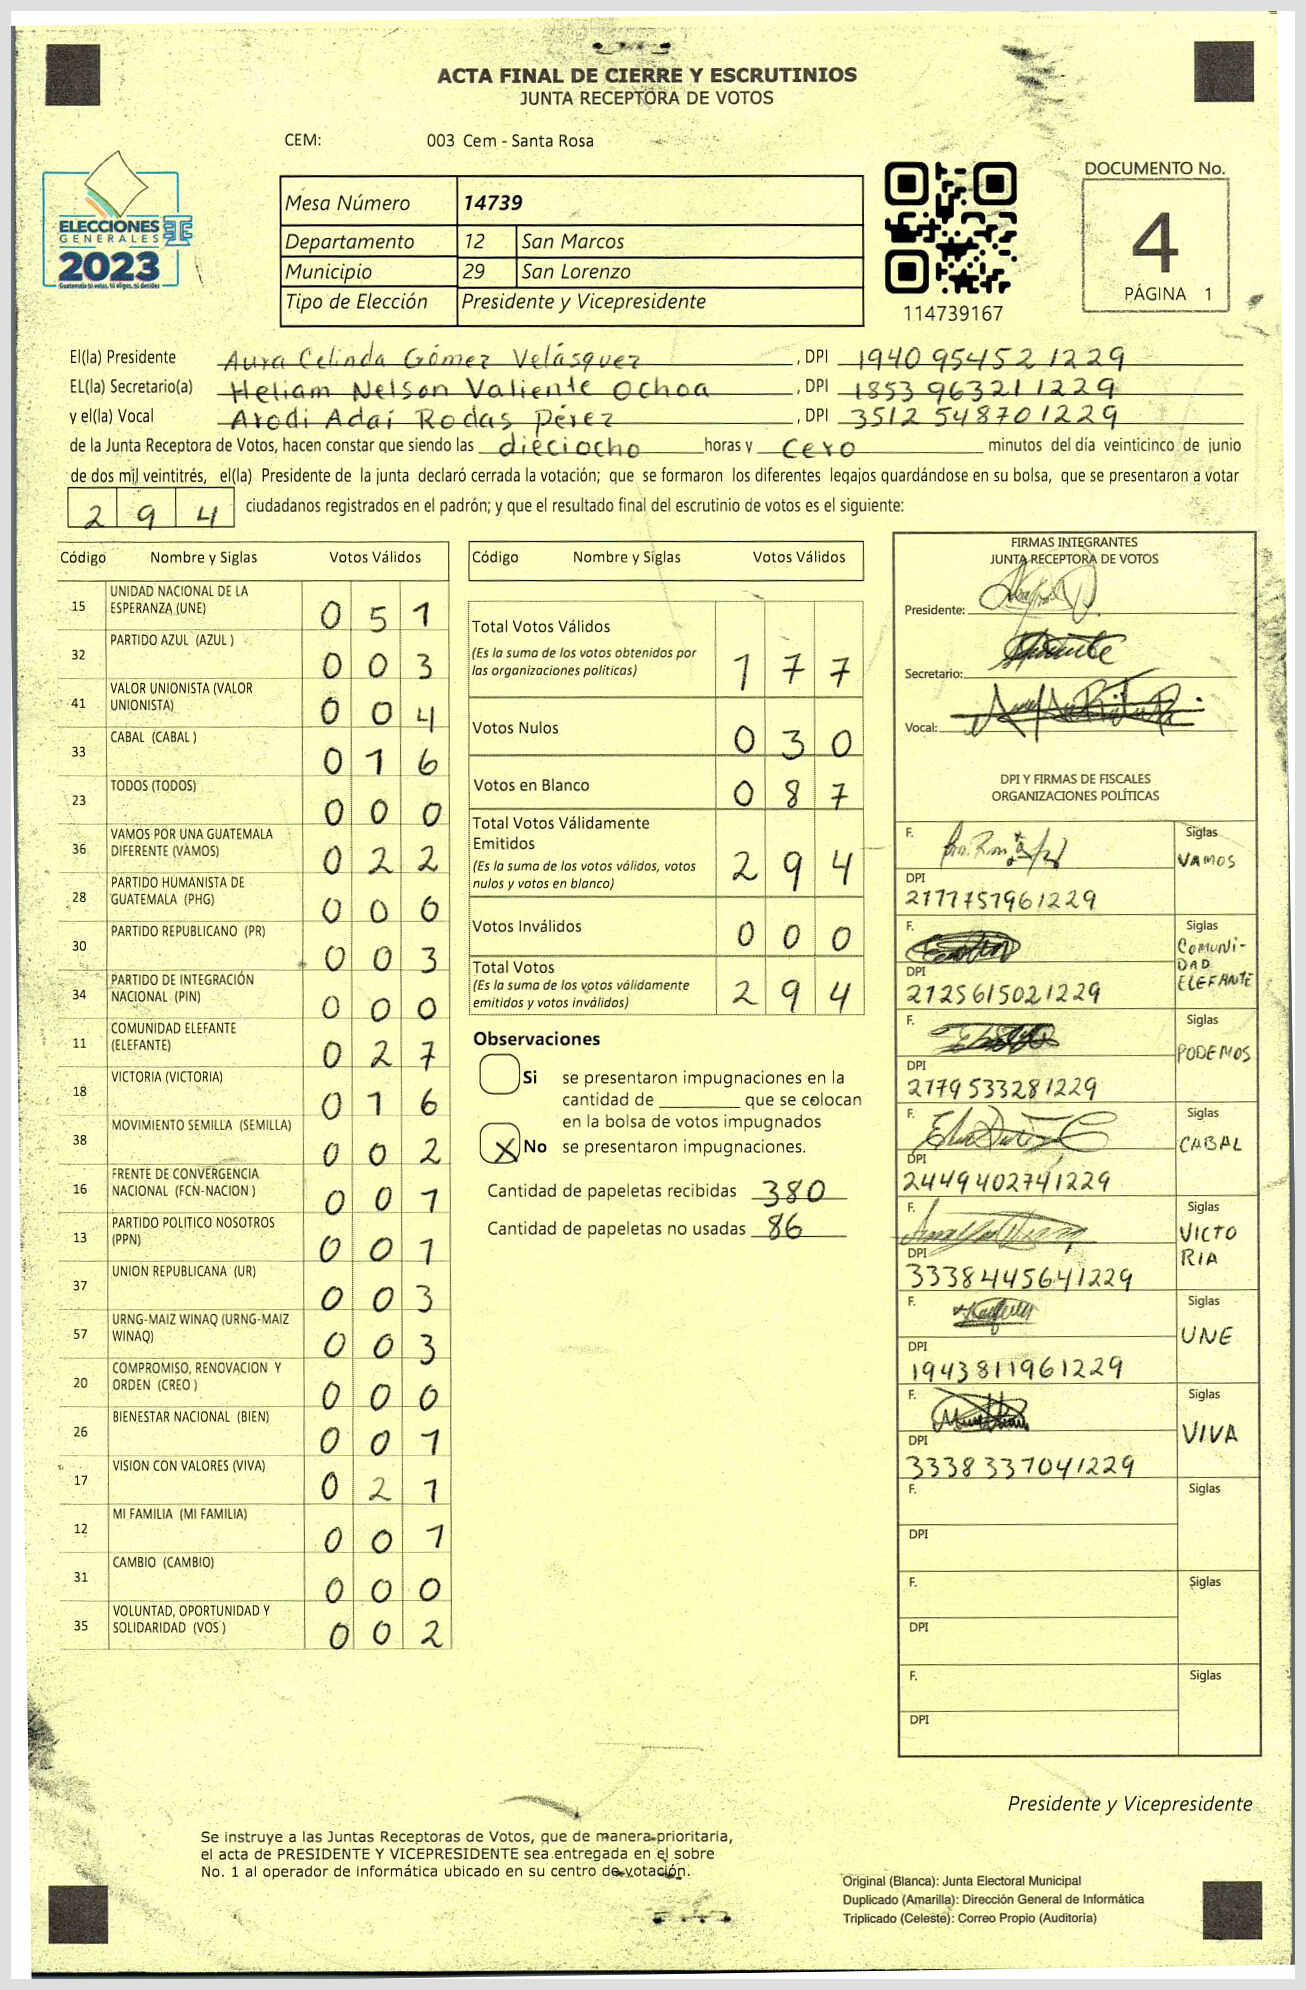 ACTA FINAL DE CIERRE Y ESCRUTINIOS
JUNTA RECEPTORA DE VOTOS
CEM: 003 Cem - Santa Rosa
ELECCIONES
GENERALES
2023
Guatemala tú votas, tú eliges, tú decides
Mesa Número 14739
Departamento 12 San Marcos
Municipio 29 San Lorenzo
Tipo de Elección Presidente y Vicepresidente
114739167
DOCUMENTO No.
4
PÁGINA 1
El(la) Presidente Aura Celinda Gómez Velásquez, DPI 1940 95452 1229
EL(la) Secretario(a) Heliam Nelson Valiente Ochoa, DPI 1853 96321 1229
y el(la) Vocal Arodi Adaí Rodas Pérez, DPI 3512 54870 1229
de la Junta Receptora de Votos, hacen constar que siendo las dieciocho horas y cero minutos del día veinticinco de junio
de dos mil veintitrés, el(la) Presidente de la junta declaró cerrada la votación; que se formaron los diferentes legajos quardándose en su bolsa, que se presentaron a votar
2 9 4 ciudadanos registrados en el padrón; y que el resultado final del escrutinio de votos es el siguiente:
Código Nombre y Siglas Votos Válidos
15 UNIDAD NACIONAL DE LA
ESPERANZA (UNE) 0 5 1
32 PARTIDO AZUL (AZUL ) 0 0 3
41 VALOR UNIONISTA (VALOR
UNIONISTA) 0 0 4
33 CABAL (CABAL ) 0 1 6
23 TODOS (TODOS) 0 0 0
36 VAMOS POR UNA GUATEMALA
DIFERENTE (VAMOS) 0 2 2
28 PARTIDO HUMANISTA DE
GUATEMALA (PHG) 0 0 0
30 PARTIDO REPUBLICANO (PR) 0 0 3
34 PARTIDO DE INTEGRACIÓN
NACIONAL (PIN) 0 0 0
11 COMUNIDAD ELEFANTE
(ELEFANTE) 0 2 7
18 VICTORIA (VICTORIA) 0 1 6
38 MOVIMIENTO SEMILLA (SEMILLA) 0 0 2
16 FRENTE DE CONVERGENCIA
NACIONAL (FCN-NACION ) 0 0 1
13 PARTIDO POLITICO NOSOTROS
(PPN) 0 0 1
37 UNION REPUBLICANA (UR) 0 0 3
57 URNG-MAIZ WINAQ (URNG-MAIZ
WINAQ) 0 0 3
20 COMPROMISO, RENOVACION Y
ORDEN (CREO ) 0 0 0
26 BIENESTAR NACIONAL (BIEN) 0 0 1
17 VISION CON VALORES (VIVA) 0 2 1
12 MI FAMILIA (MI FAMILIA) 0 0 1
31 CAMBIO (CAMBIO) 0 0 0
35 VOLUNTAD, OPORTUNIDAD Y
SOLIDARIDAD (VOS ) 0 0 2
Código Nombre y Siglas Votos Válidos
Total Votos Válidos
(Es la suma de los votos obtenidos por
las organizaciones politicas) 1 7 7
Votos Nulos 0 3 0
Votos en Blanco 0 8 7
Total Votos Válidamente
Emitidos
(Es la suma de los votos válidos, votos
nulos y votos en blanco) 2 9 4
Votos Inválidos 0 0 0
Total Votos
(Es la suma de los votos válidamente
emitidos y votos inválidos) 2 9 4
Observaciones
Si se presentaron impugnaciones en la
cantidad de ________ que se colocan
en la bolsa de votos impugnados
X No se presentaron impugnaciones.
Cantidad de papeletas recibidas 380
Cantidad de papeletas no usadas 86
FIRMAS INTEGRANTES
JUNTA RECEPTORA DE VOTOS
Presidente:
Secretario:
Vocal:
DPI Y FIRMAS DE FISCALES
ORGANIZACIONES POLÍTICAS
F. Siglas
VAMOS
DPI
2177757961229
F. Siglas
COMUNI-
DAD
ELEFANTE
DPI
2125615021229
F. Siglas
PODEMOS
DPI
2179533281229
F. Siglas
CABAL
DPI
2449402741229
F. Siglas
VICTO
RIA
DPI
3338445641229
F. Siglas
UNE
DPI
1943811961229
F. Siglas
VIVA
DPI
3338337041229
F. Siglas
DPI
F. Siglas
DPI
F. Siglas
DPI
Presidente y Vicepresidente
Se instruye a las Juntas Receptoras de Votos, que de manera prioritaria,
el acta de PRESIDENTE Y VICEPRESIDENTE sea entregada en el sobre
No. 1 al operador de informática ubicado en su centro de votación.
Original (Blanca): Junta Electoral Municipal
Duplicado (Amarilla): Dirección General de Informática
Triplicado (Celeste): Correo Propio (Auditoría)